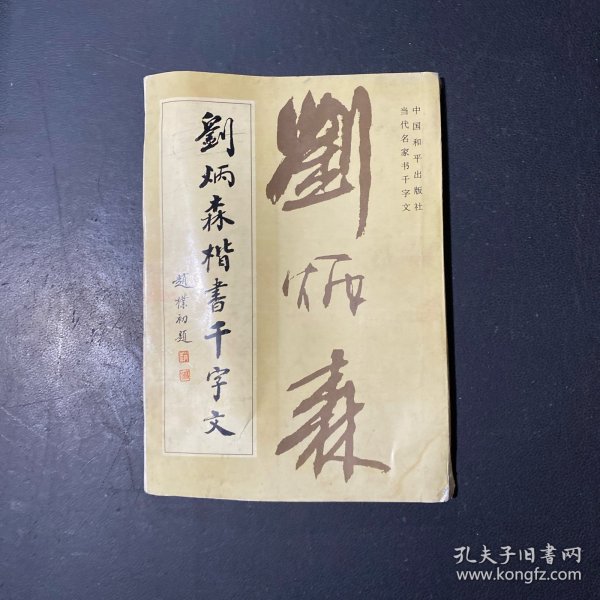 中国和平出版社
当代名家书千字文
劉炳森
劉炳森楷書千字文
趙樸初題
孔夫子旧書网
www.kongfz.com